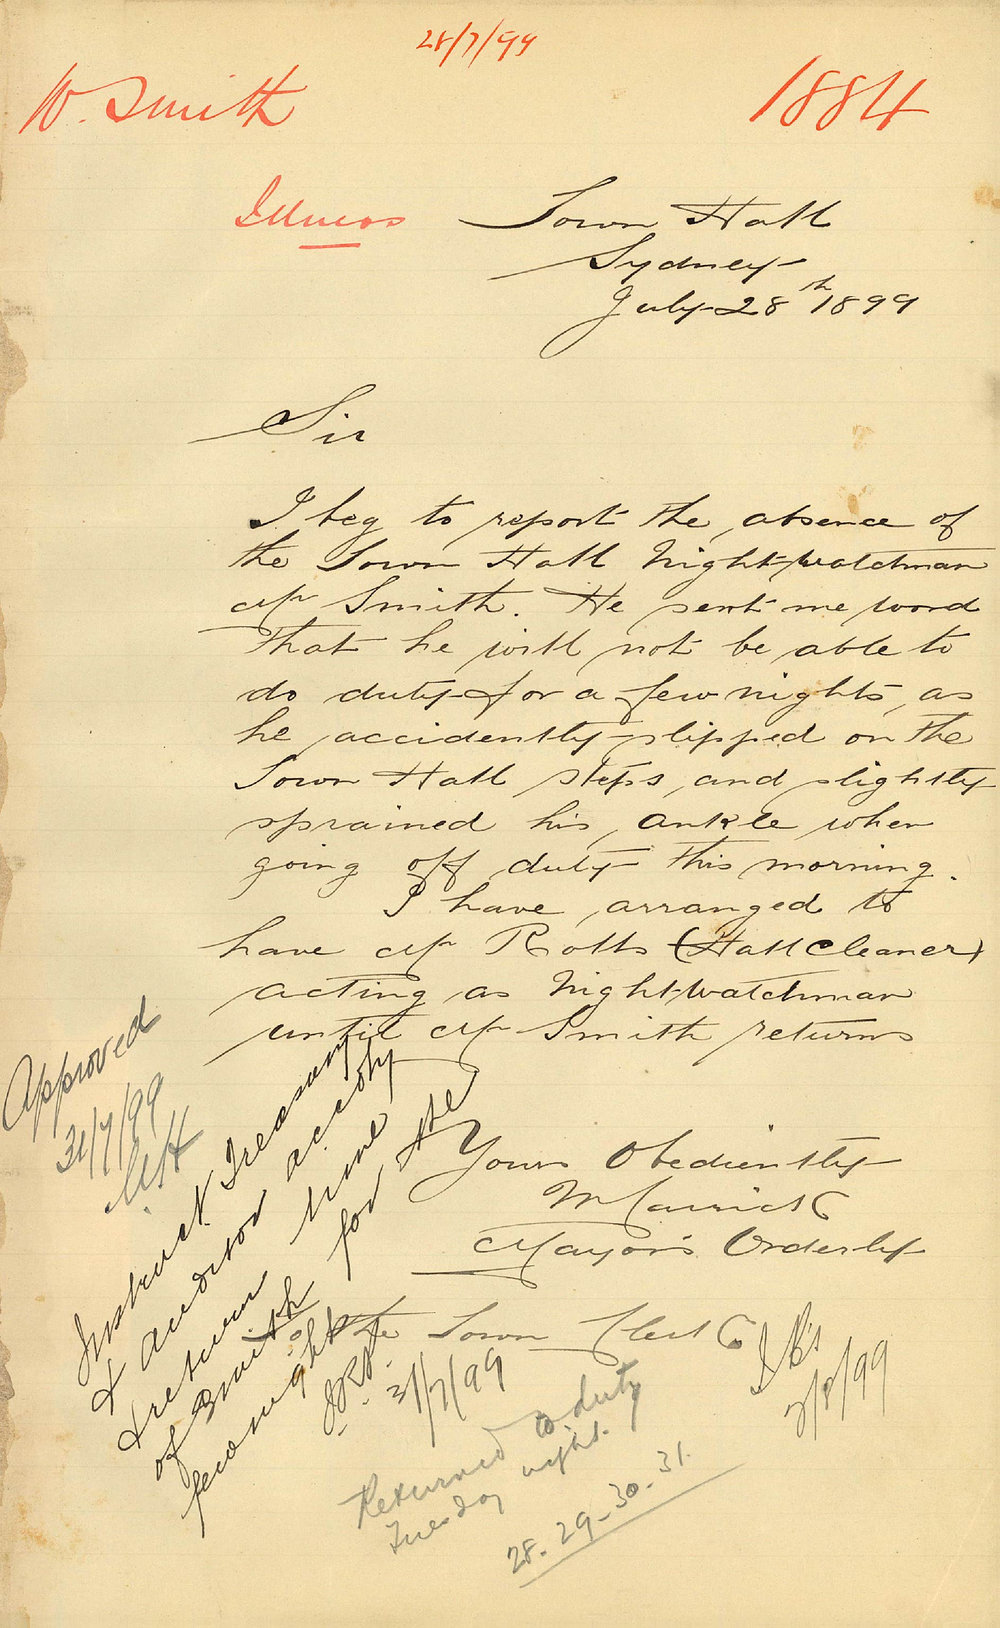 28/7/99
W. Smith
1884
Illness
Town Hall
Sydney
July 28th 1899
Sir
I beg to report the absence of
the Town Hall Night-watchman
Mr Smith. He sent me word
that he will not be able to
do duty for a few nights, as
he accidently slipped on the
Town Hall steps, and slightly
sprained his ankle when
going off duty this morning.
I have arranged to
have Mr Rotts (Hall Cleaner)
acting as Night-watchman
until Mr Smith returns
Yours Obediently
Mayor's Orderly
To the Town Clerk
Approved
31/7/99
Instruct Treasury
& auditor accdly
& return
of Smith for the
few nights
31/7/99
Returned to duty
Tuesday night.
28. 29-30-31.
/8/99